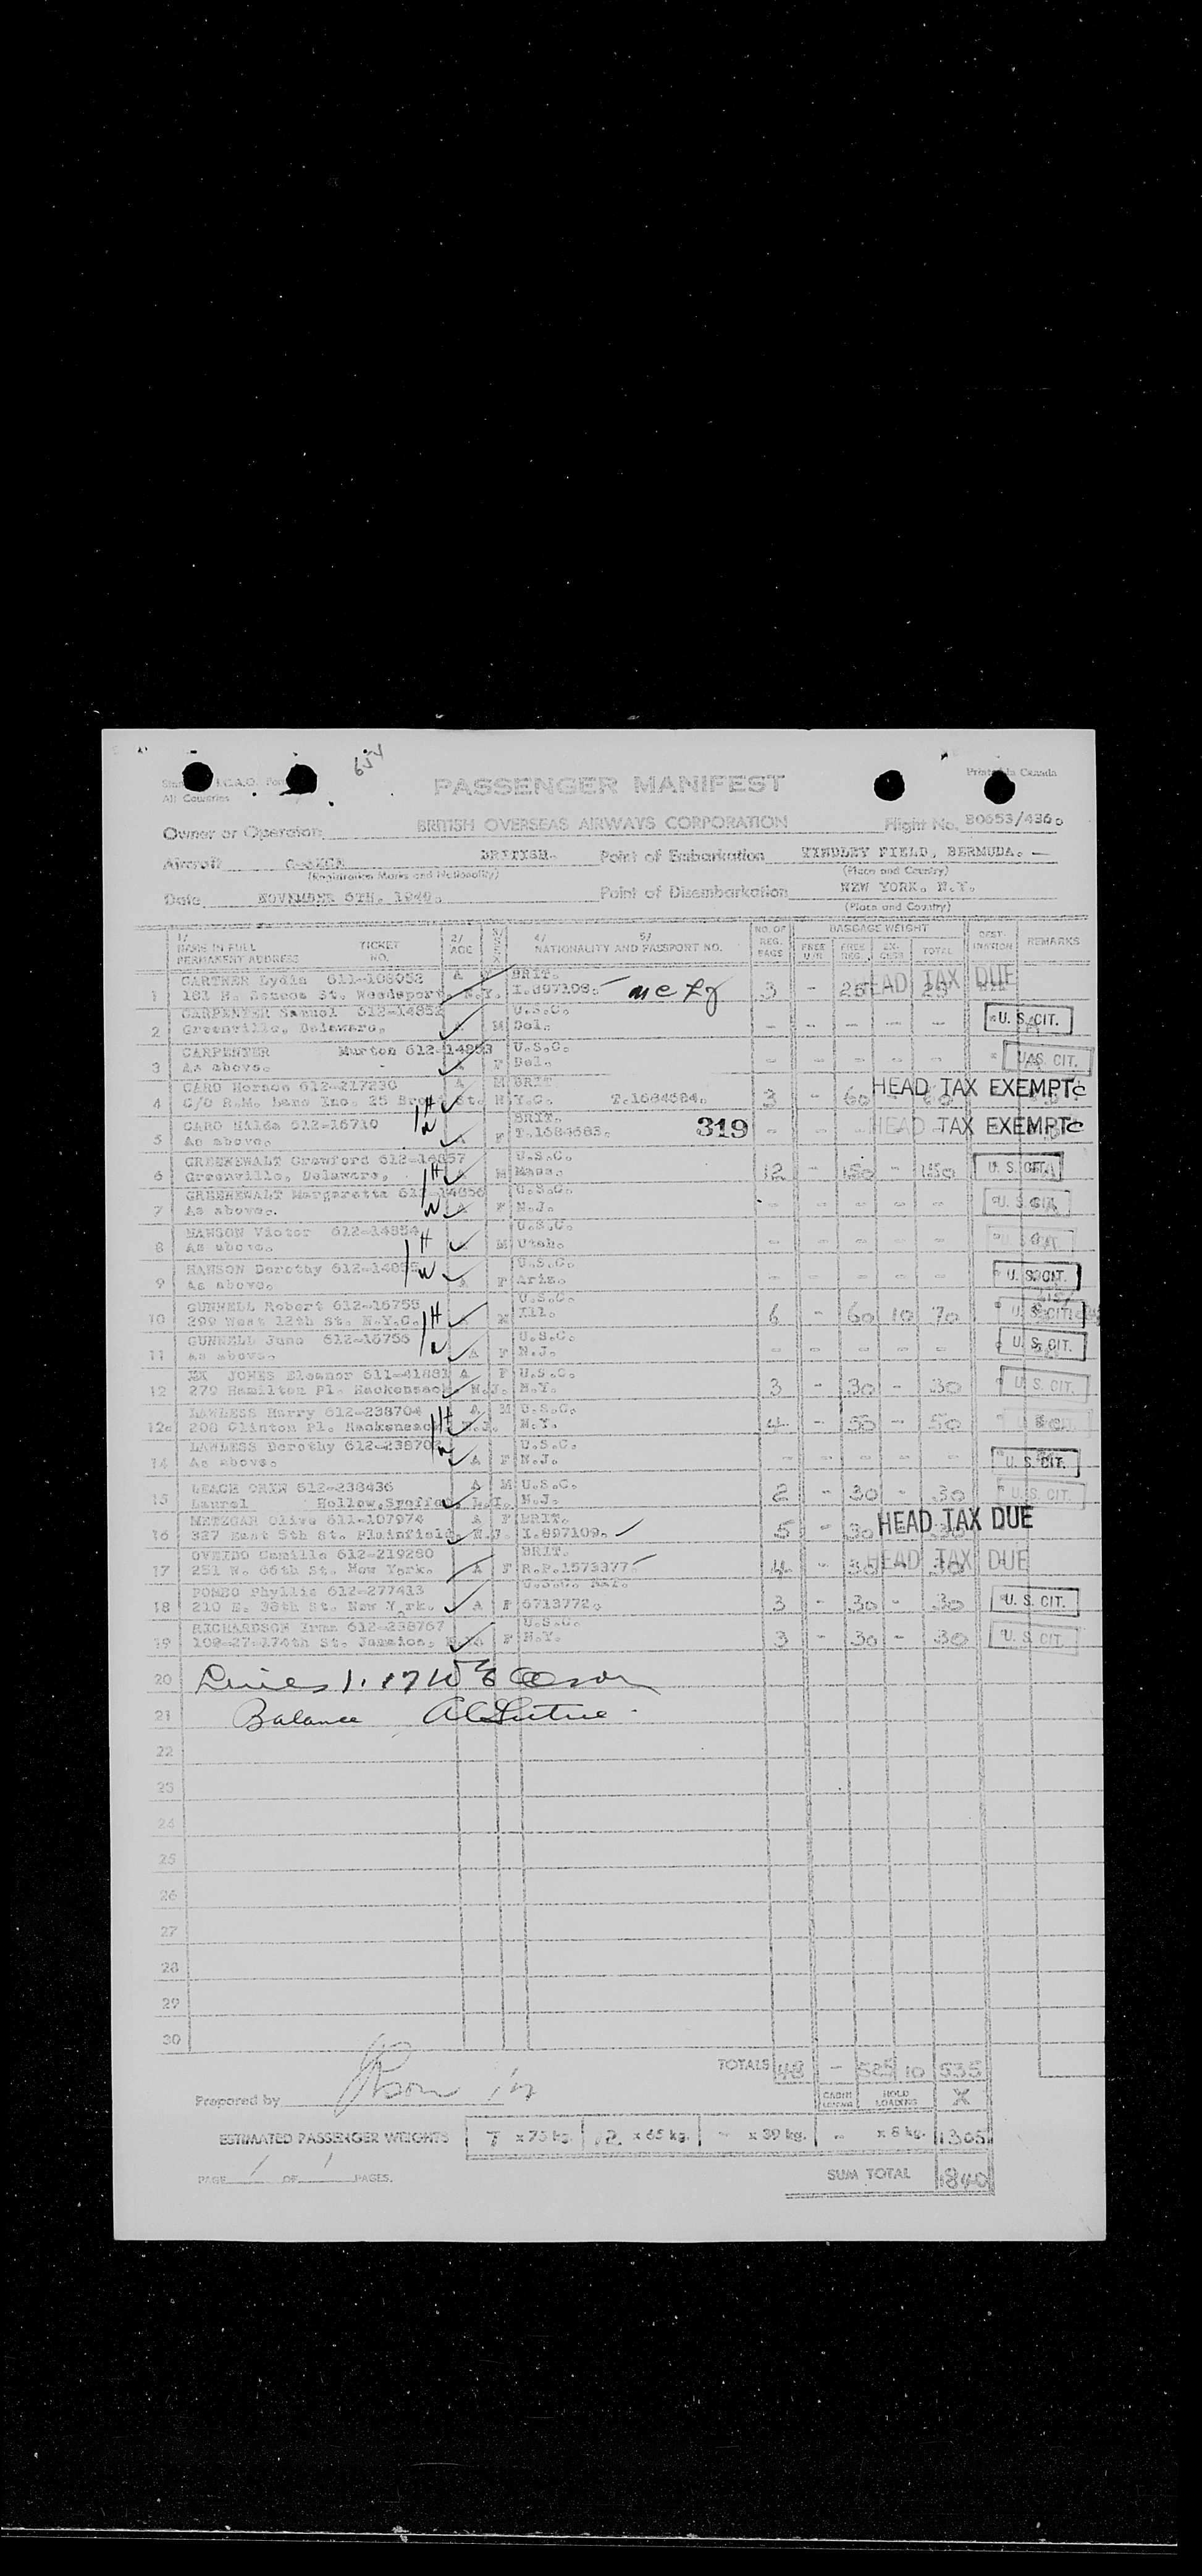 654
I.C.A.O.
All Countries
Printed in Canada
PASSENGER MANIFEST
Owner or Operator BRITISH OVERSEAS AIRWAYS CORPORATION Flight No. B0653/436.
Aircraft BRITISH. Point of Embarkation KINDLEY FIELD, BERMUDA. —
(Registration Marks and Nationality) (Place and Country)
Date NOVEMBER 5TH. 1949. Point of Disembarkation NEW YORK. N.Y.
(Place and Country)
1/ NAME IN FULL PERMANENT ADDRESS TICKET NO. 2/ AGE 3/ SEX 4/ 5/ NATIONALITY AND PASSPORT NO. NO. OF REG. BAGS BAGGAGE WEIGHT FREE FREE REG. EX- CESS TOTAL DEST- INATION REMARKS
CARTNER Lydia 611-108052 A BRIT.
1 181 St. Weedsport, N.Y. I.897108. 3 - 25 - 25 HEAD TAX DUE
CARPENTER Samuel 612-14852 U.S.C.
2 Greenville, Delaware, A M Del. - - - - - U. S. CIT.
CARPENTER Murton 612-14853 U.S.C.
3 As above. A F Del. - - - - - U. S. CIT.
CARO Horace 612-217230 A M BRIT.
4 C/O R.M. Inc. 25 Broad St. N.Y.C. T.1684584. 3 - 60 - 60 HEAD TAX EXEMPT c
CARO Hilda 612-16710 BRIT.
5 As above. A F T.1684583. 319 - - - - - HEAD TAX EXEMPT c
GREENEWALT Crawford 612-14857 U.S.C.
6 Greenville, Delaware, H A M Mass. 12 - 150 - 150 U. S. CIT.
GREENEWALT Margaretta 612-14856 U.S.C.
7 As above. W A F N.J. - - - - - U. S. CIT.
HANSON Victor 612-14854 U.S.C.
8 As above. H M Utah. - - - - - U. S. CIT.
HANSON Dorothy 612-14855 U.S.C.
9 As above. W A F Ariz. - - - - - U. S. CIT.
GUNNELL Robert 612-16755 U.S.C.
10 299 West 12th St. N.Y.C. H M Ill. 6 - 60 10 70 U. S. CIT.
GUNNELL June 612-16756 U.S.C.
11 As above. W A F N.J. - - - - - U. S. CIT.
JONES Eleanor 611-41881 A F U.S.C.
12 279 Hamilton Pl. Hackensack, N.J. N.Y. 3 - 30 - 30 U. S. CIT.
LAWLESS Harry 612-238704 A M U.S.C.
12a 208 Clinton Pl. Hackensack N.J. H N.Y. 4 - 50 - 50
LAWLESS Dorothy 612-238703 U.S.C.
14 As above. W A F N.J. - - - - - U. S. CIT.
LEACH ORIN 612-238436 A M U.S.C.
15 Laurel Hollow, L.I. N.J. 2 - 30 - 30 U. S. CIT.
METZGAR Olive 611-107974 A F BRIT.
16 327 East 5th St. Plainfield, N.J. I.897109. 5 - 30 HEAD TAX DUE
OVEIDO Camille 612-219280 BRIT.
17 251 W. 66th St. New York. A F R.P.1573377 4 - HEAD TAX DUE
POMBO Phyllis 612-277413 U.S.C. NAT.
18 210 E. 38th St. New York. A F 6713772. 3 - 30 - 30 U. S. CIT.
RICHARDSON Irma 612-238767 U.S.C.
19 109-27-174th St. Jamaica, N.Y. F N.Y. 3 - 30 - 30 U. S. CIT.
20 Lines 1. 17
21 Balance
22
23
24
25
26
27
28
29
30
TOTALS 48 - 525 10 535
Prepared by CABIN LOADING HOLD LOADING X
ESTIMATED PASSENGER WEIGHTS 7 x 75 kg. 12 x 65 kg. - x 39 kg. - x 8 kg. 1305
PAGE 1 OF 1 PAGES. SUM TOTAL 1840